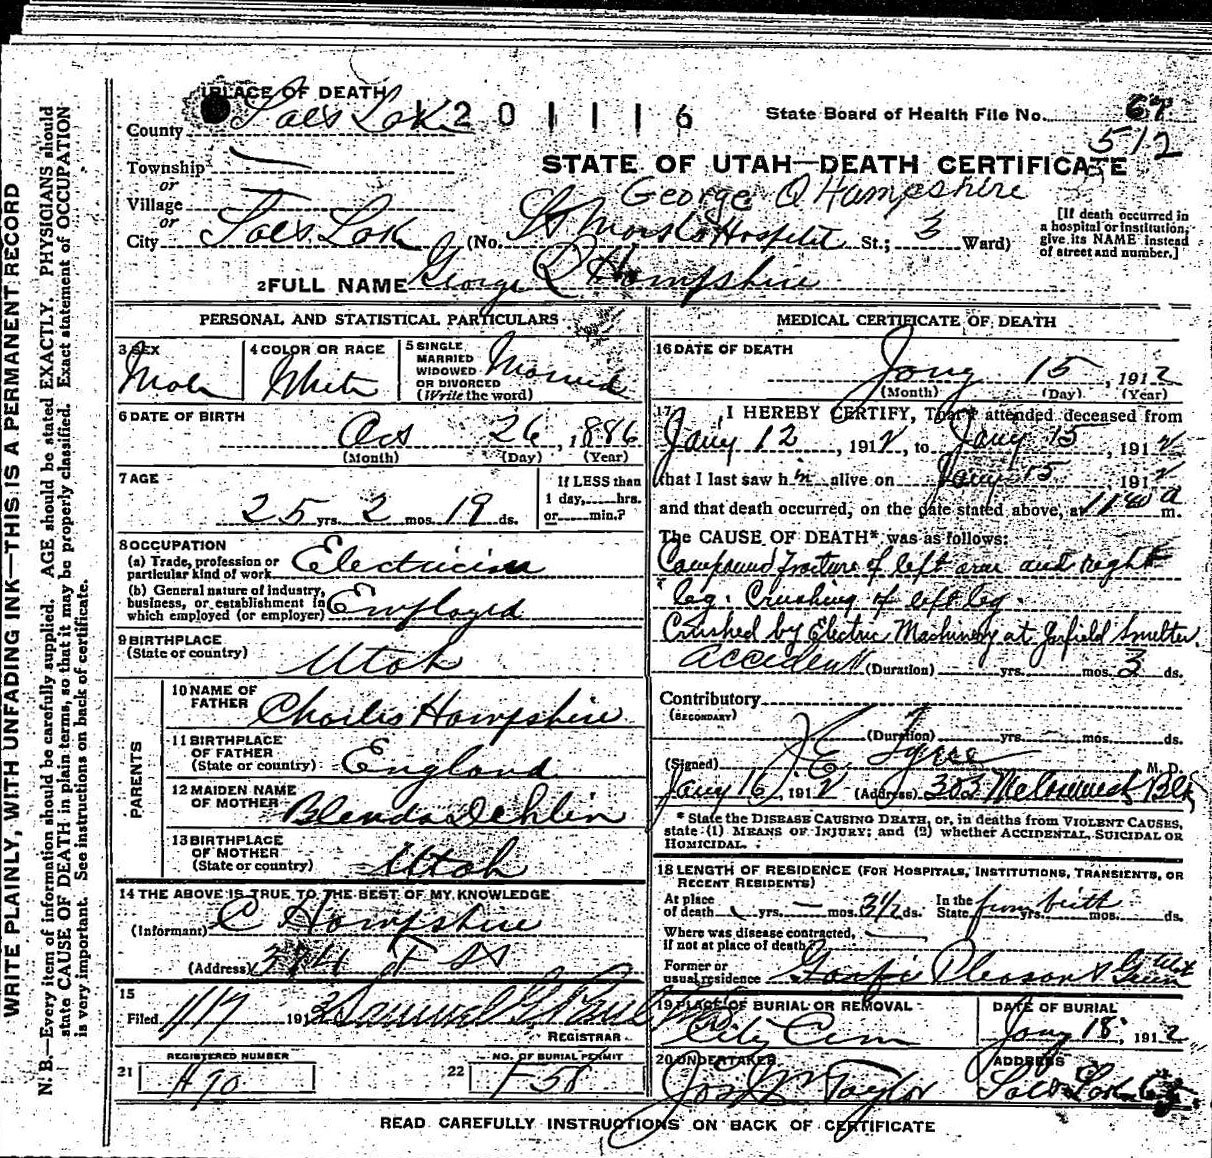 WRITE PLAINLY, WITH UNFADING INK—THIS IS A PERMANENT RECORD
N. B.—Every item of information should be carefully supplied. AGE should be stated EXACTLY. PHYSICIANS should
state CAUSE OF DEATH in plain terms, so that it may be properly classified. Exact statement of OCCUPATION
is very important. See instructions on back of certificate.
1 PLACE OF DEATH
County Salt Lake
1201116
State Board of Health File No. 67
512
Township
or
Village
or
City Salt Lake
STATE OF UTAH—DEATH CERTIFICATE
George Q Hampshire
(No. St Marks Hospital St.; 3 Ward)
[If death occurred in
a hospital or institution,
give its NAME instead
of street and number.]
2 FULL NAME George Q Hampshire
PERSONAL AND STATISTICAL PARTICULARS
3 SEX Male
4 COLOR OR RACE White
5 SINGLE
MARRIED
WIDOWED
OR DIVORCED
(Write the word) Married
6 DATE OF BIRTH
Oct 26, 1886
(Month) (Day) (Year)
7 AGE
25 yrs. 2 mos. 19 ds.
If LESS than
1 day, hrs.
or min.?
8 OCCUPATION
(a) Trade, profession or
particular kind of work Electrician
(b) General nature of industry,
business, or establishment in
which employed (or employer) Employed
9 BIRTHPLACE
(State or country) Utah
PARENTS
10 NAME OF
FATHER Charles Hampshire
11 BIRTHPLACE
OF FATHER
(State or country) England
12 MAIDEN NAME
OF MOTHER Blenda Dehlin
13 BIRTHPLACE
OF MOTHER
(State or country) Utah
14 THE ABOVE IS TRUE TO THE BEST OF MY KNOWLEDGE
(Informant) C Hampshire
(Address)
15
Filed 1/17 1912 Samuel G Paul
REGISTRAR
REGISTERED NUMBER
21 H 90
NO. OF BURIAL PERMIT
22 F 58
MEDICAL CERTIFICATE OF DEATH
16 DATE OF DEATH
Jany 15, 1912
(Month) (Day) (Year)
17 I HEREBY CERTIFY, That I attended deceased from
Jany 12, 1912, to Jany 15, 1912
that I last saw him alive on Jany 15, 1912
and that death occurred, on the date stated above, at 11 40 a m.
The CAUSE OF DEATH* was as follows:
Compound fracture of left arm and right
leg. Crushing of left leg.
Crushed by Electric Machinery at Garfield Smelter.
accident (Duration) yrs. mos. 3 ds.
Contributory
(SECONDARY)
(Duration) yrs. mos. ds.
(Signed) J E Tyree M. D.
Jany 16, 1912 (Address) 303 McCornick Blk
* State the DISEASE CAUSING DEATH, or, in deaths from VIOLENT CAUSES,
state (1) MEANS OF INJURY; and (2) whether ACCIDENTAL, SUICIDAL OR
HOMICIDAL.
18 LENGTH OF RESIDENCE (FOR HOSPITALS, INSTITUTIONS, TRANSIENTS, OR
RECENT RESIDENTS)
At place
of death yrs. mos. 3½ ds. In the
State from birth yrs. mos. ds.
Where was disease contracted,
if not at place of death?
Former or
usual residence Pleasant Green Utah
19 PLACE OF BURIAL OR REMOVAL
City Cem
DATE OF BURIAL
Jany 18, 1912
20 UNDERTAKER
Jos Wm Taylor
ADDRESS
Salt Lake City
READ CAREFULLY INSTRUCTIONS ON BACK OF CERTIFICATE